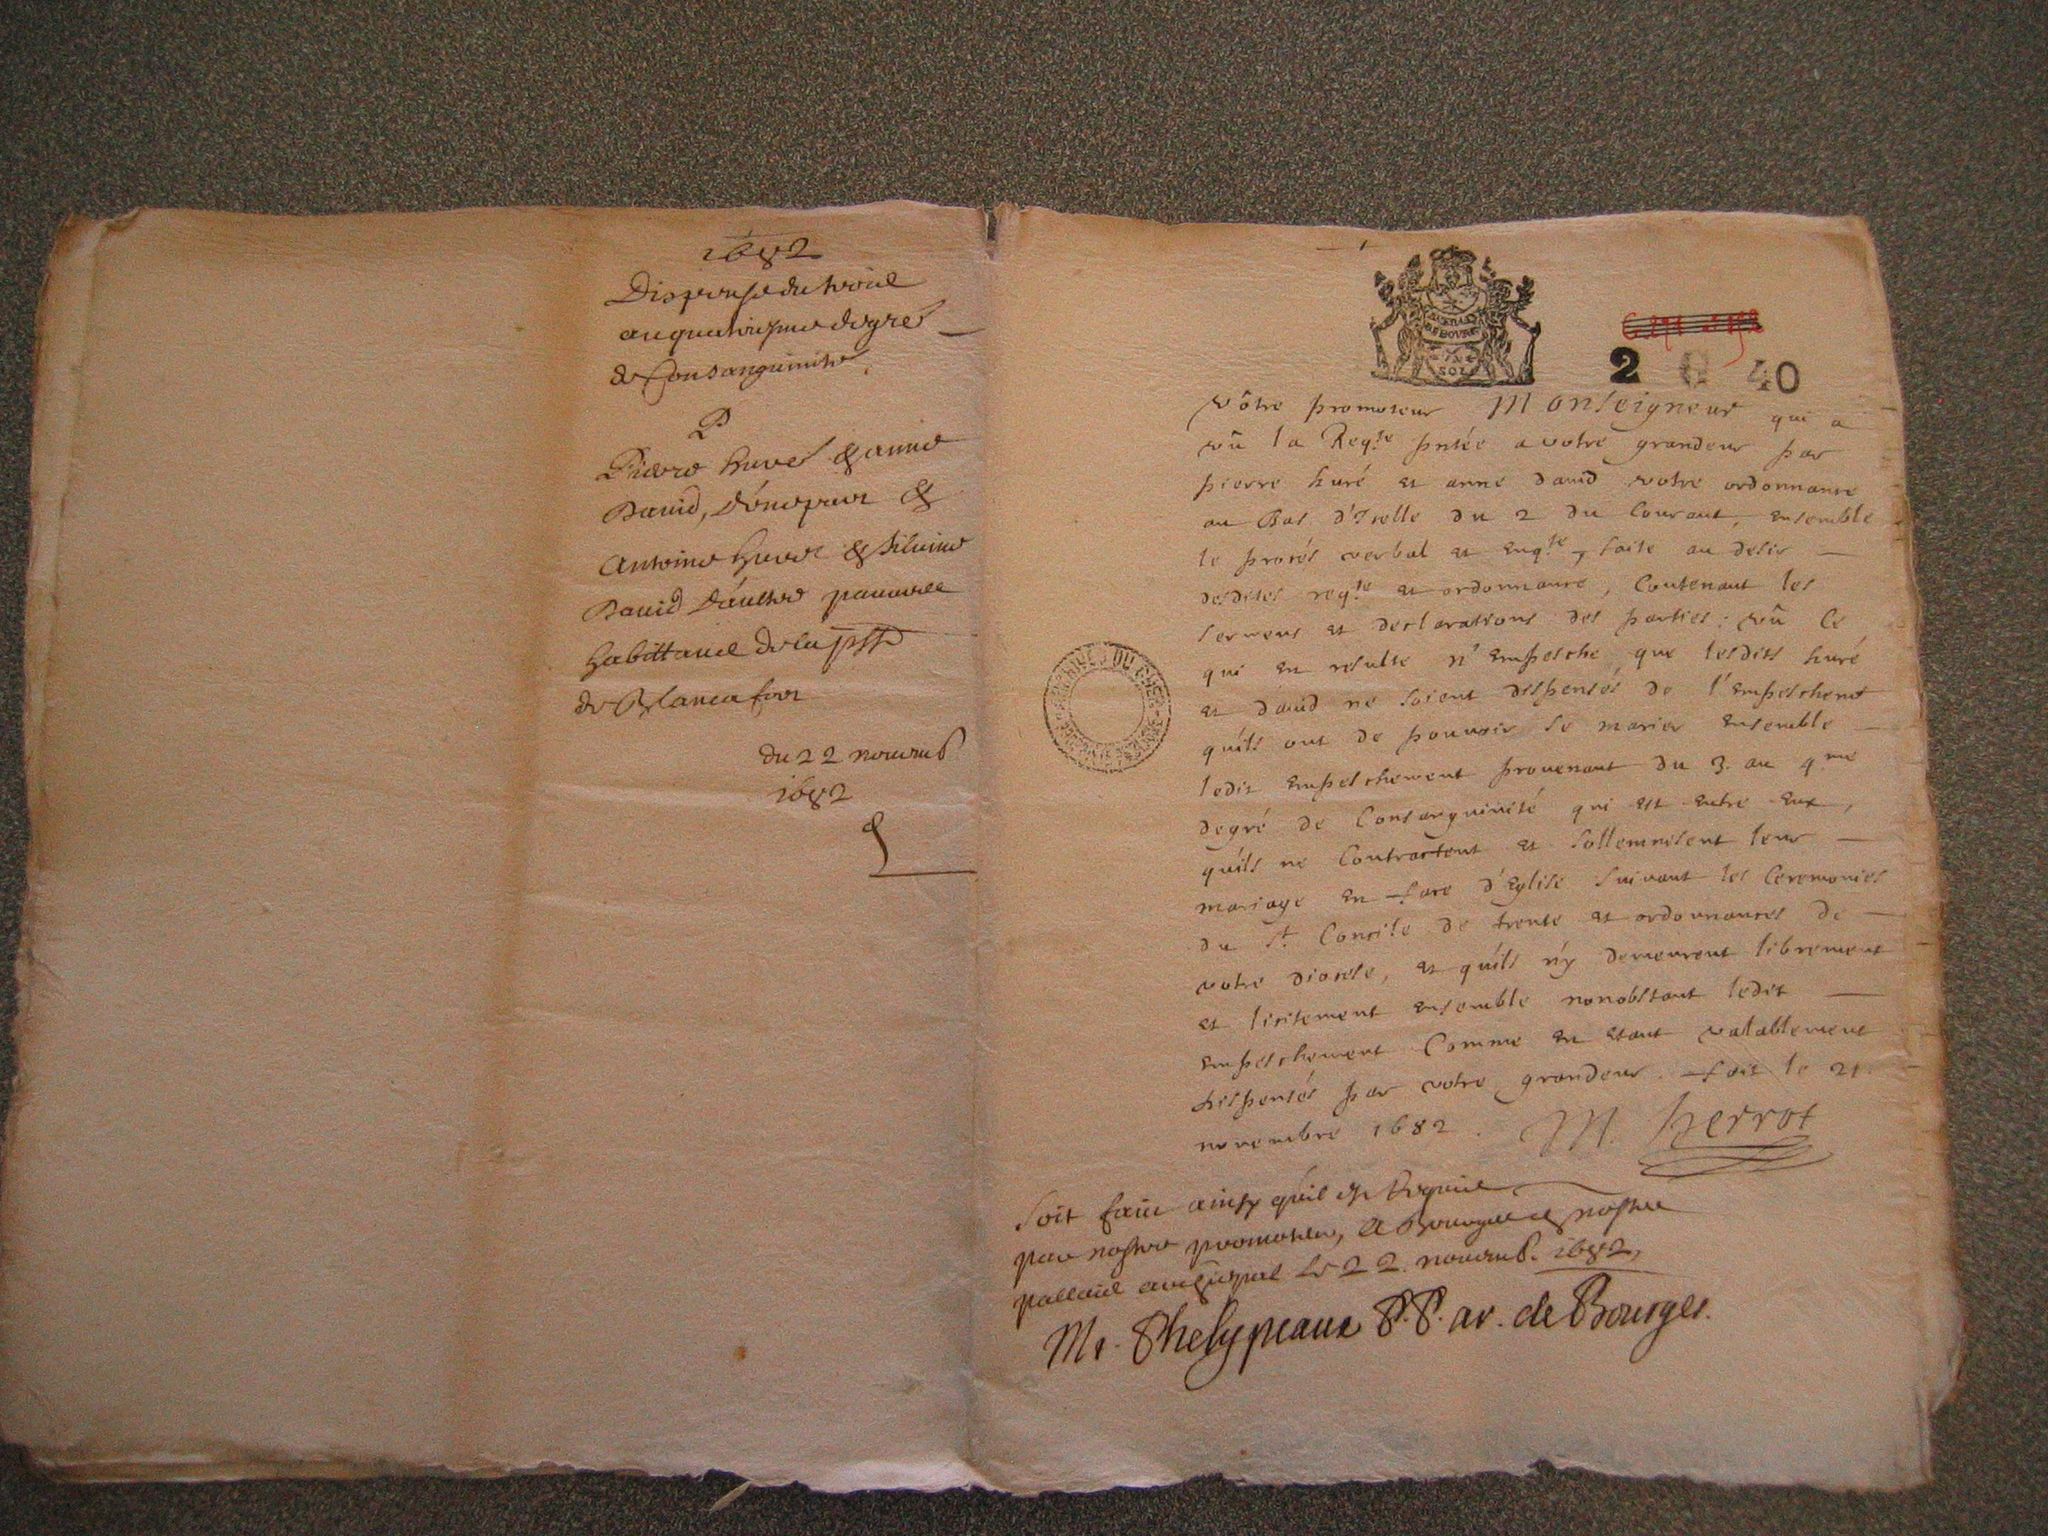 1682
Dispense du trois
au quatriesme degrés
de Consanguinité
P
Pierre huré & anne
David, d'une part &
Antoine huré & silvine
David d'autre pauvres
habittans de la psse
de Blancafort
du 22 novemb.
1682
SOL
2 G 40
vôtre promoteur Monseigneur qui a
vû la Reqte pntée a votre grandeur par
pierre huré et anne david votre ordonnance
au bas d'icelle du 2 du Courant, ensemble
le procés verbal et enqte, faite au desir
desdites reqte et ordonnance, Contenant les
sermens et declarations des parties; vû ce
qui en resulte n'empesche que lesdits huré
et david ne soient dispensés de l'empeschemt
qu'ils ont de pouvoir se marier ensemble
ledit empeschement provenant du 3. au 4me
degré de Consanguinité qui est entre eux,
qu'ils ne Contractent et sollemnisent leur
mariage en face d'Eglise suivant les Ceremonies
du St Concile de trente et ordonnances de
votre diocese, et qu'ils n'y demeurent librement
et licitement ensemble nonobstant ledit
empeschement Comme en etant valablement
dispensés par votre grandeur. fait le 21
novembre 1682. M. perrot
Soit faict ainsy qu'il est Requis
par nostre promoteur, A Bourges en nostre
pallais archiepal le 22 novemb. 1682,
Mr. Phelypeaux P.P. ar. de Bourges.